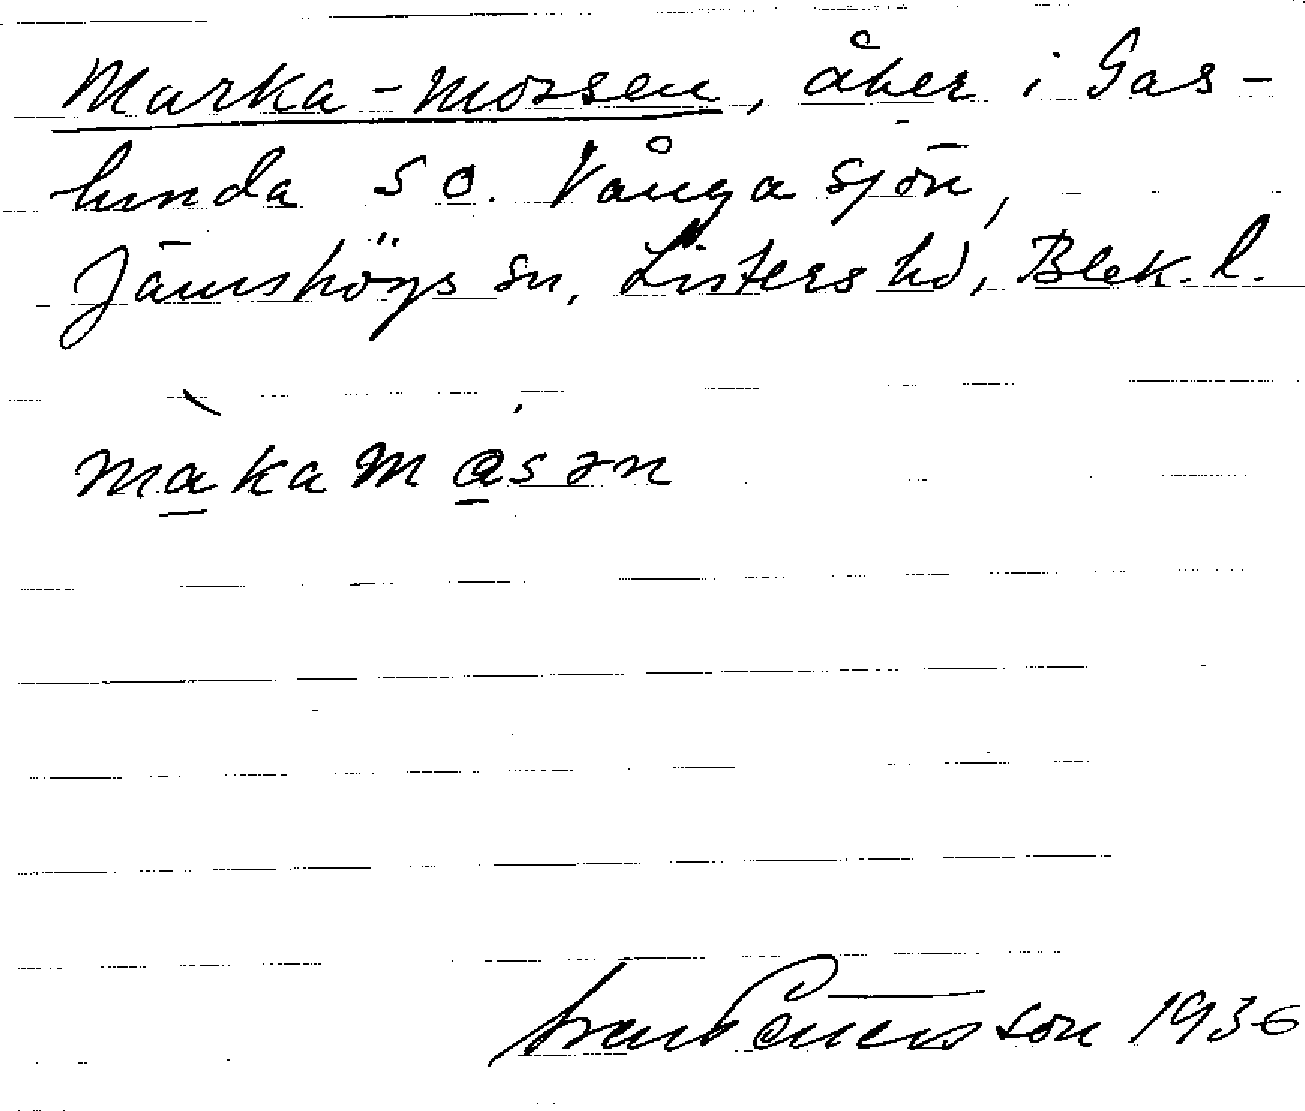 Marka-mossen, åker i Gas-
lunda SO. Vånga sjön,
Jämshögs sn, Listers hd, Blek. l.
màkamåsən
son 1936